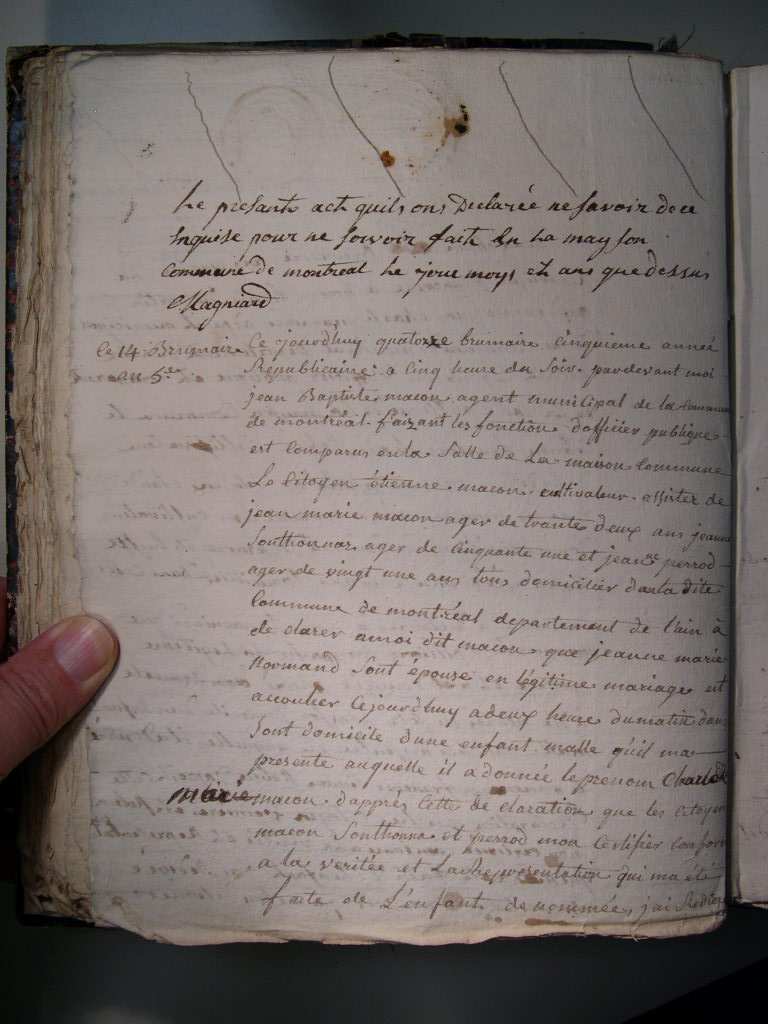 Le present act quils ons Declarée ne savoir de ce
Enquise pour ne sorvoir fait En La may son
Commune de montreal Le jour moys Et ans que dessus
Magniard
Le 14 Brumaire
au 5e
Ce jourdhuy quatorze brumaire Cinquieme année
Republicaine a Cinq heure du Soir pardevant moi
jean Baptiste macon agent municipal de la Commune
de montréal faizant les fonction dofficier publique
est Comparus enla Salle de La maison Commune
Le Citoyen étienne macon cultivateur assister de
jean marie macon ager de trante deux ans jeanne
Southonnaz ager de Cinquante une et jeanne perrod
ager de vingt une ans tous domicilier danla dite
Commune de montréal departement de l'ain à
de clarer amoi dit macon que jeanne marie
Normand Sont épouse en légitime mariage est
accoucher Cejourdhuy adeux heure dumatin dans
Sont domicile dune enfant malle quil ma
presente auquelle il a donnée le prenom Charle
marie macon d'apprés Cette de claration que les Citoyen
macon Southonna et perrod mon Certifier Conform
a la veritée et La Representation qui ma été
faite de L'enfant denommée, j'ai Redige